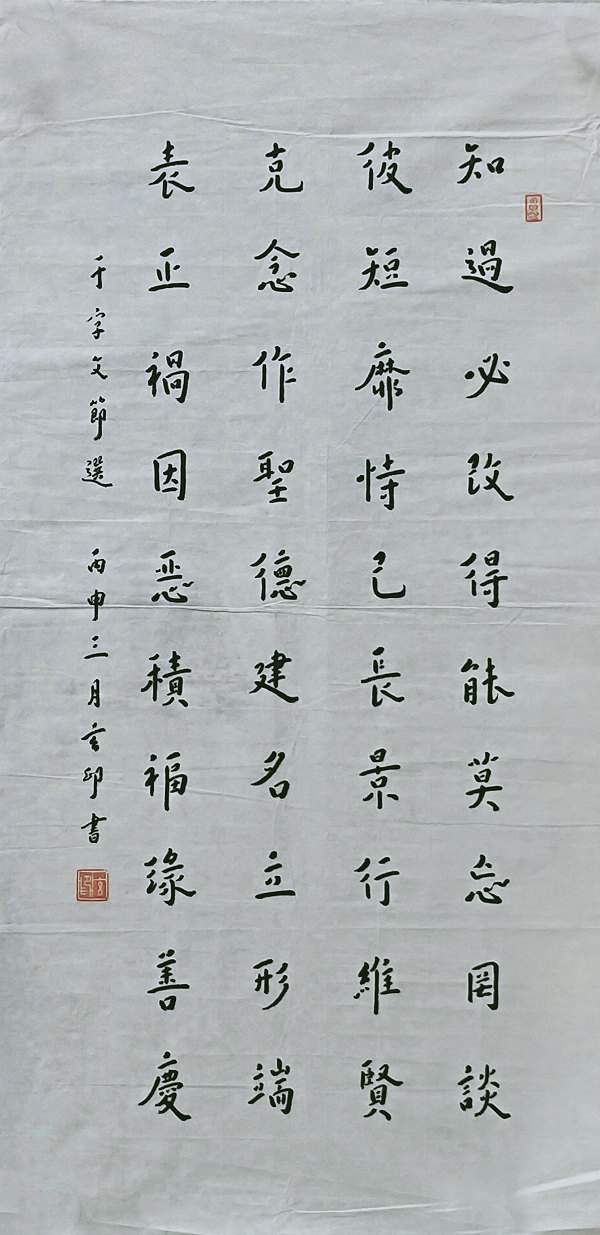 知過必改得能莫忘罔談
彼短靡恃己長景行維賢
克念作聖德建名立形端
表正禍因惡積福緣善慶
千字文節選 丙申三月玄印書